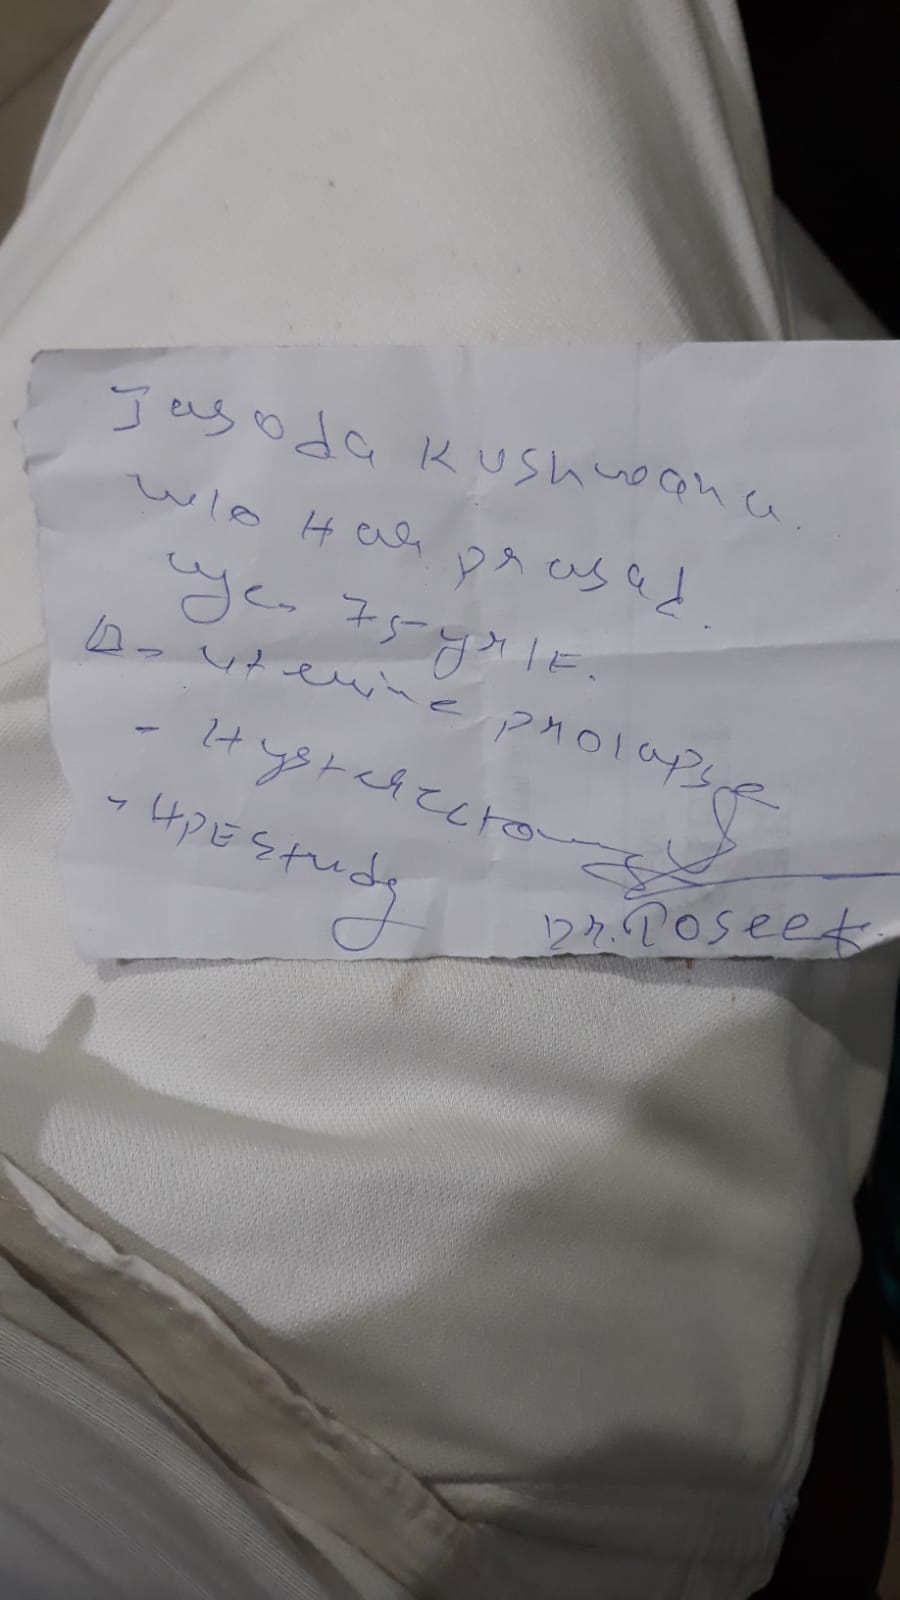 Jasoda Kushwaha.
W/o Har prasad.
age - 75 yr/F.
Δ - uterine prolapse
- Hysterectomy
- HPE Study
Dr.